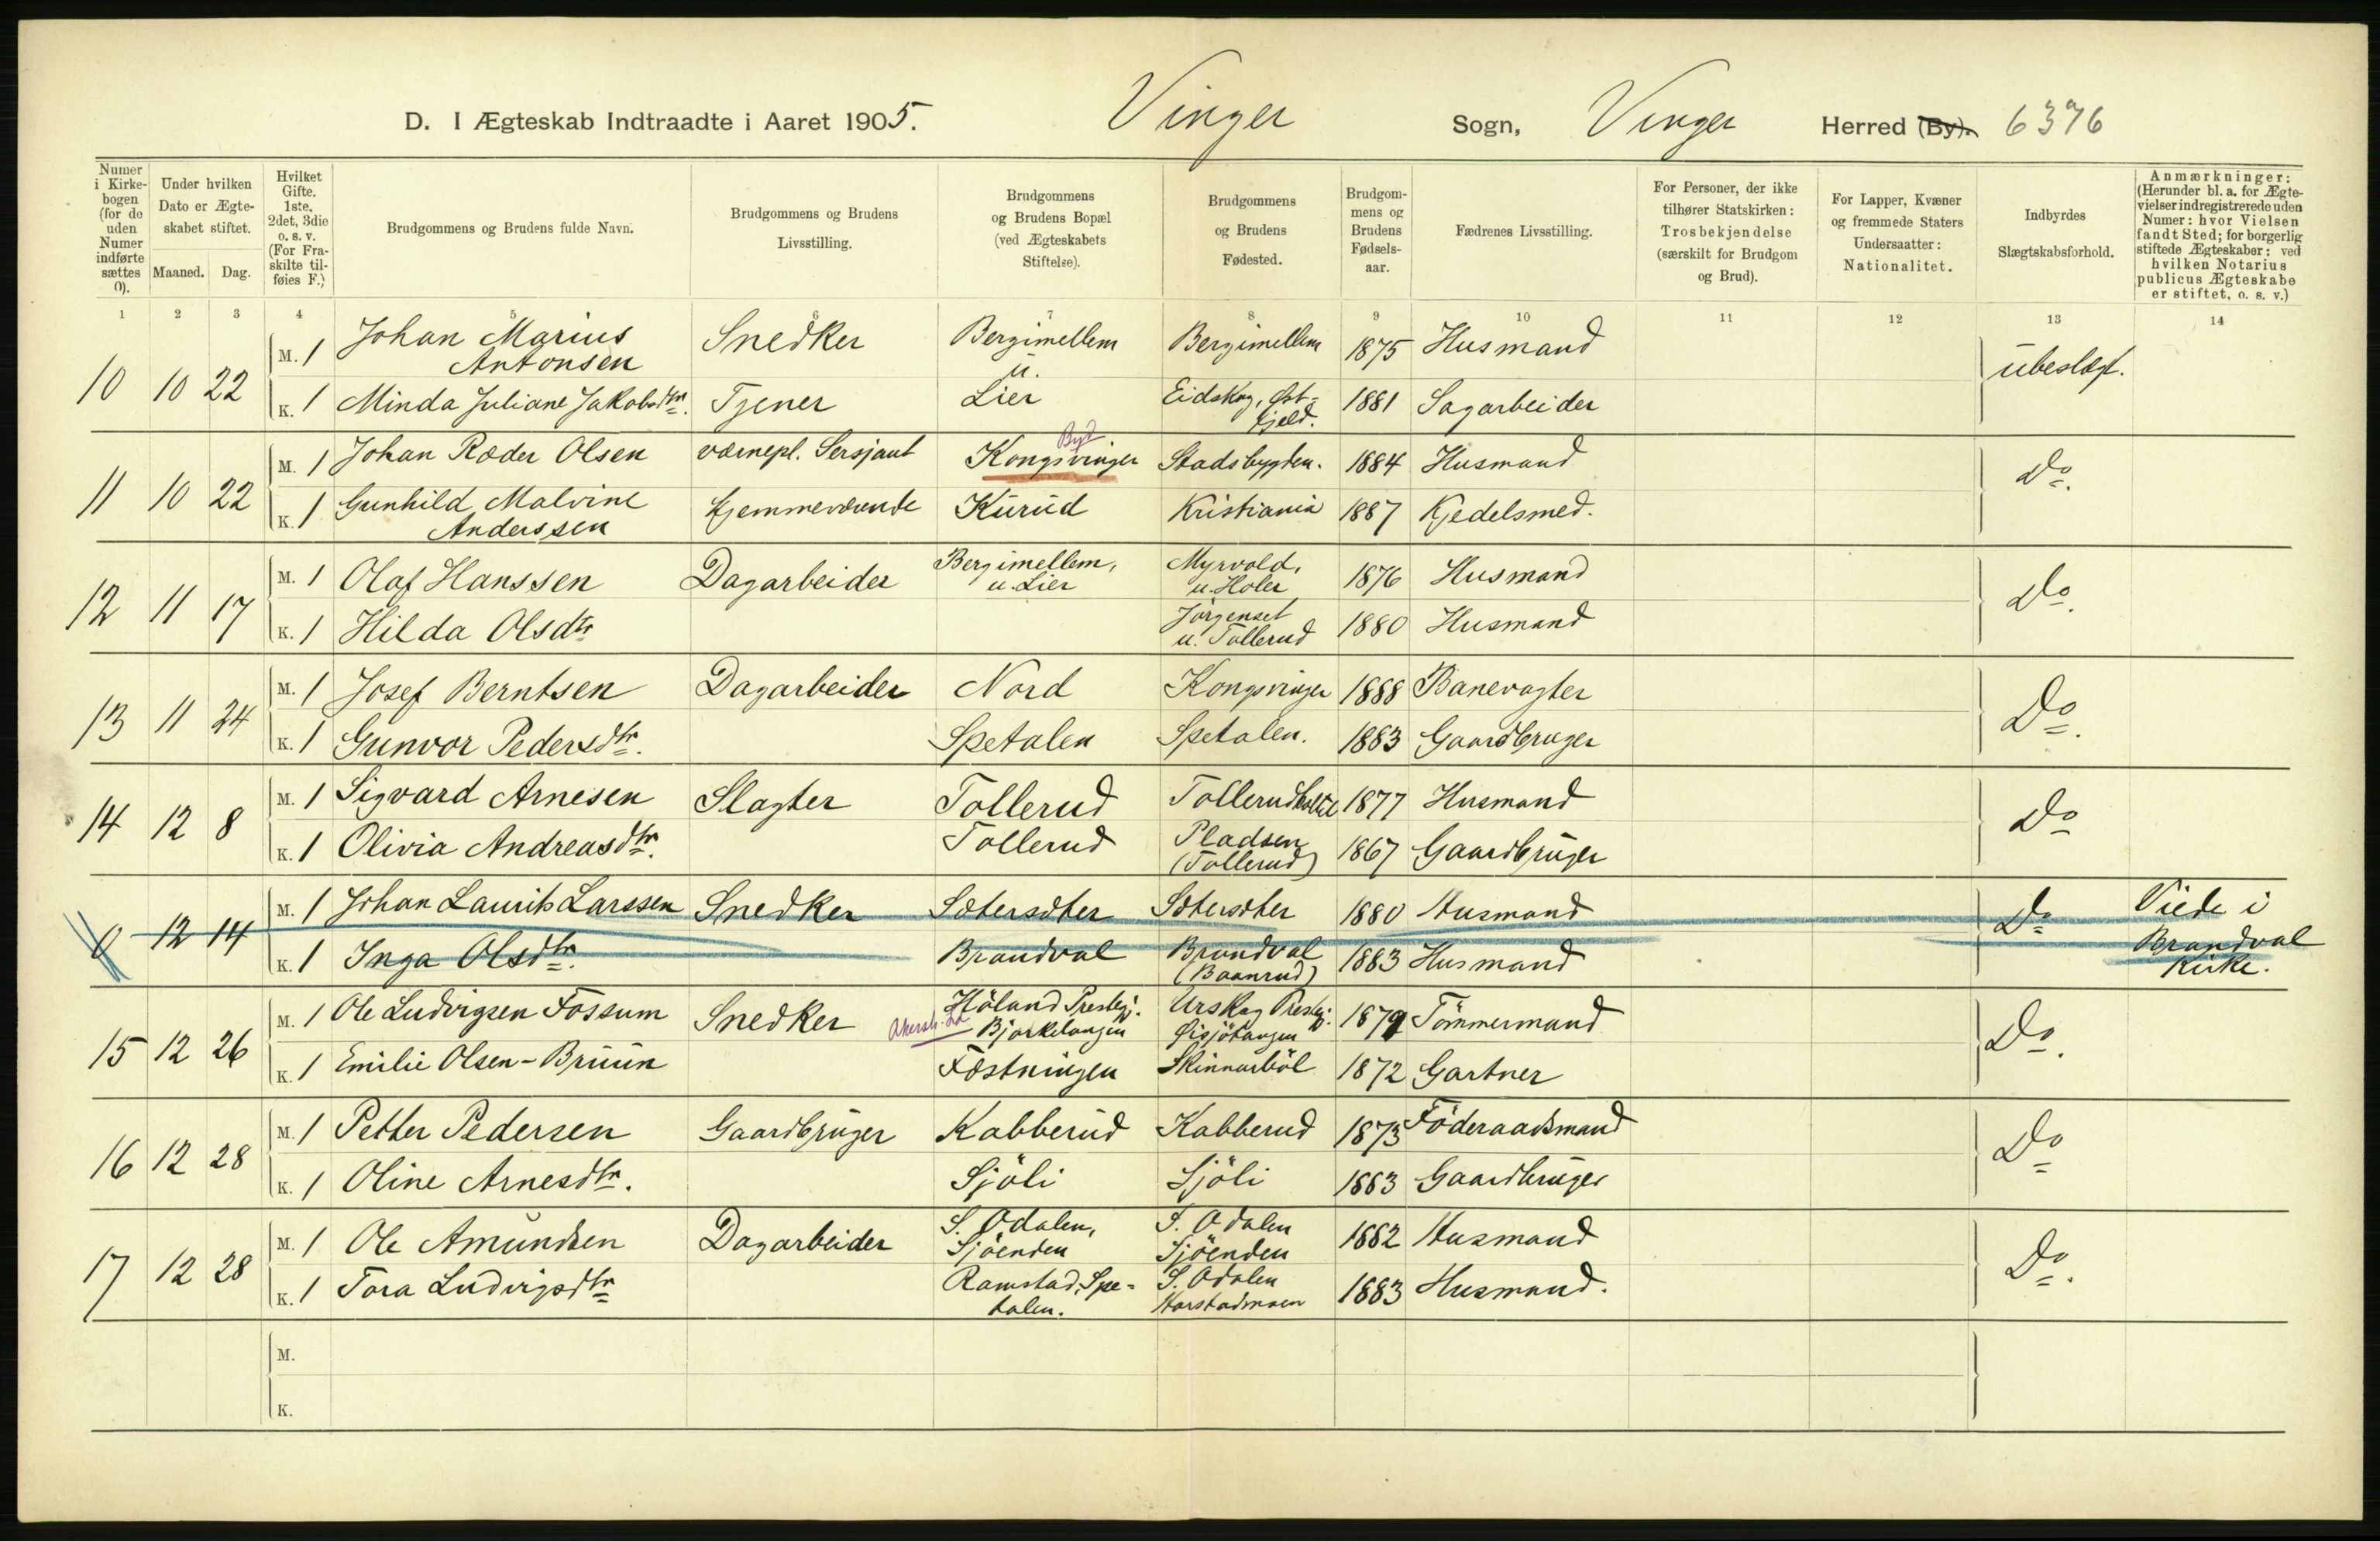 D. I Ægteskab Indtraadte i Aaret 1905. Vinger Sogn, Vinger Herred (By). 6376
Numer i Kirkebogen (for de uden Numer indførte sættes 0).
Under hvilken Dato er Ægteskabet stiftet.
Maaned. Dag.
Hvilket Gifte. 1ste, 2det, 3die o. s. v. (For Fraskilte tilføies F.)
Brudgommens og Brudens fulde Navn.
Brudgommens og Brudens Livsstilling.
Brudgommens og Brudens Bopæl (ved Ægteskabets Stiftelse).
Brudgommens og Brudens Fødested.
Brudgommens og Brudens Fødselsaar.
Fædrenes Livsstilling.
For Personer, der ikke tilhører Statskirken: Trosbekjendelse (særskilt for Brudgom og Brud).
For Lapper, Kvæner og fremmede Staters Undersaatter: Nationalitet.
Indbyrdes Slægtskabsforhold.
Anmærkninger: (Herunder bl. a. for Ægtevielser indregistrerede uden Numer: hvor Vielsen fandt Sted; for borgerlig stiftede Ægteskaber: ved hvilken Notarius publicus Ægteskabe er stiftet, o. s. v.)
1 2 3 4 5 6 7 8 9 10 11 12 13 14
10 10 22 M. 1 Johan Marius Antonsen Snedker Bergimellem u. Bergimellem 1875 Husmand ubeslægt.
K. 1 Minda Juliane Jakobsdtr. Tjener Lier Eidskog, Øst- 1881 Sagarbeider
11 10 22 M. 1 Johan Ræder Olsen værnepl. Sersjant Kongsvinger By Stadsbygden. 1884 Husmand Do.
K. 1 Gunhild Malvine Anderssen Hjemmeværende Kurud Kristiania 1887 Kjedelsmed.
12 11 17 M. 1 Olaf Hanssen Dagarbeider Bergimellem, u. Lier Myrvold, u. Holer 1876 Husmand Do.
K. 1 Hilda Olsdtr Jörgenset u. Tollerud 1880 Husmand
13 11 24 M. 1 Josef Berntsen Dagarbeider Nord Kongsvinger 1888 Banevogter Do.
K. 1 Gunvor Pedersdtr. Spetalen Spetalen. 1883 Gaardbruger
14 12 8 M. 1 Sigvard Arnesen Slagter Tollerud 1877 Husmand Do
K. 1 Olivia Andreasdtr. Tollerud Pladsen (Tollerud) 1867 Gaardbruger
0 12 14 M. 1 Johan Laurits Larssen Snedker Sætersæter Sætersæter 1880 Husmand Do Viede i Brandval Kirke.
K. 1 Inga Olsdtr. Brandval Brandval (Baanrud) 1883 Husmand
15 12 26 M. 1 Ole Ludvigsen Fossum Snedker Höland Prestegj. Bjørkelangen Urskog Prestegj. 1879 Tömmermand Do.
K. 1 Emilie Olsen-Bruun Fæstningen Skinnarböl 1872 Gartner
16 12 28 M. 1 Petter Pedersen Gaardbruger Kabberud Kabberud 1873 Föderaadsmand Do
K. 1 Oline Arnesdtr. Sjöli Sjöli 1883 Gaardbruger
17 12 28 M. 1 Ole Amundsen Dagarbeider S. Odalen, Sjöenden S. Odalen Sjöenden 1882 Husmand Do.
K. 1 Tora Ludvigsdtr Ramstad, Spetalen. S. Odalen Harstadmoen 1883 Husmand.
M.
K.